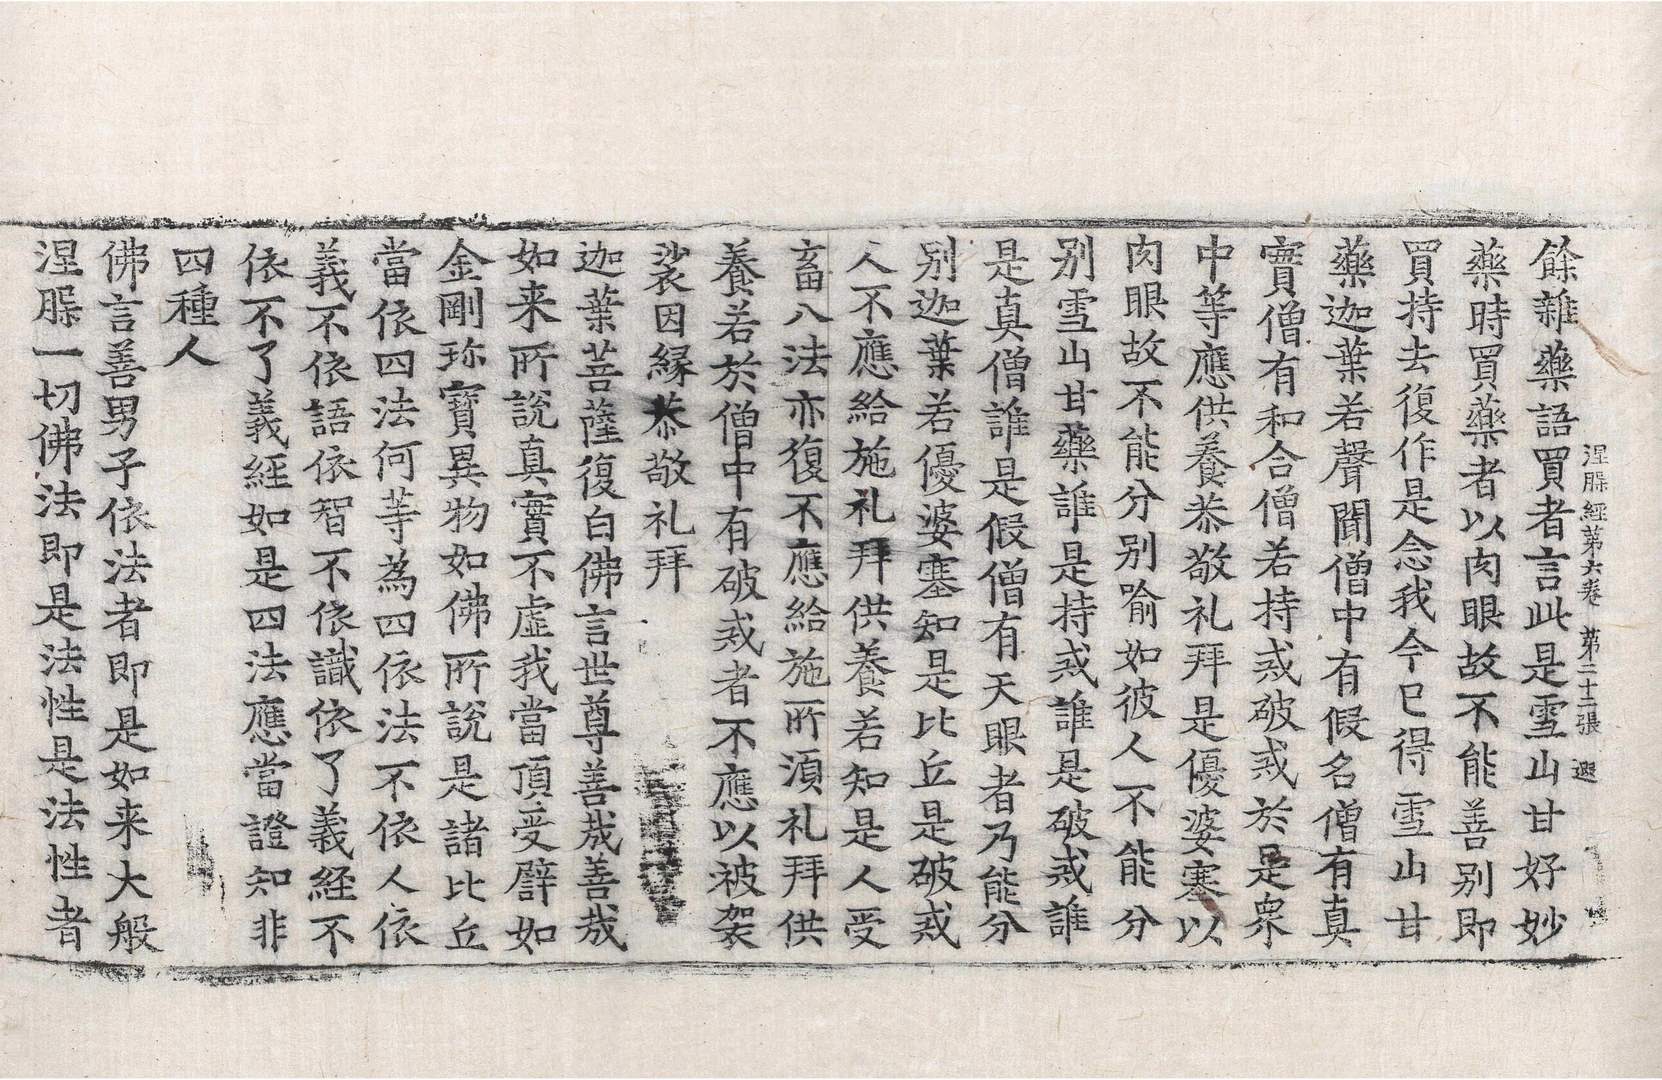 涅槃經第六卷 第二十二張 遐
餘雜藥語買者言此是雪山甘好妙
藥時買藥者以肉眼故不能善別即
買持去復作是念我今已得雪山甘
藥迦葉若聲聞僧中有假名僧有真
實僧有和合僧若持戒破戒於是衆
中等應供養恭敬礼拜是優婆塞以
肉眼故不能分别喻如彼人不能分
别雪山甘藥誰是持戒誰是破戒誰
是真僧誰是假僧有天眼者乃能分
别迦葉若優婆塞知是比丘是破戒
人不應給施礼拜供養若知是人受
畜八法亦復不應給施所湏礼拜供
養若於僧中有破戒者不應以被袈
裟因縁恭敬礼拜
迦葉菩薩復白佛言世尊善哉善哉
如来所說真實不虛我當頂受譬如
金剛珎寶異物如佛所說是諸比丘
當依四法何等為四依法不依人依
義不依語依智不依識依了義経不
依不了義経如是四法應當證知非
四種人
佛言善男子依法者即是如来大般
涅槃一切佛法即是法性是法性者